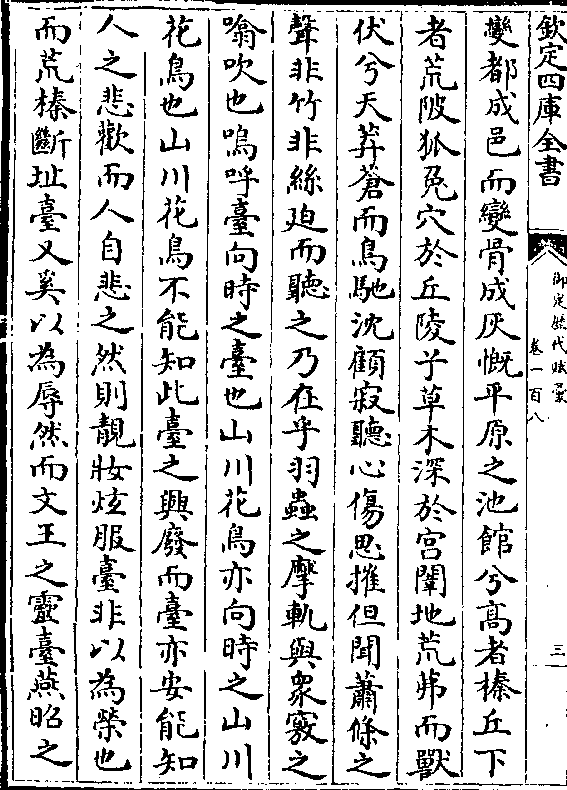 欽定四庫全書
御定歷代賦彙
卷一百八
三
變都成邑而變骨成灰慨平原之池館兮高者榛丘下
者荒陂狐兎穴於丘陵兮草木深於宫闈地荒茀而獸
伏兮天莽蒼而鳥馳沈顧寂聽心傷思摧但聞蕭條之
聲非竹非絲廹而聽之乃在乎羽蟲之摩軋與衆竅之
噏吹也嗚呼臺向時之臺也山川花鳥亦向時之山川
花鳥也山川花鳥不能知此臺之興廢而臺亦安能知
人之悲歡而人自悲之然則靚妝炫服臺非以為榮也
而荒榛斷址臺又奚以為辱然而文王之靈臺燕昭之